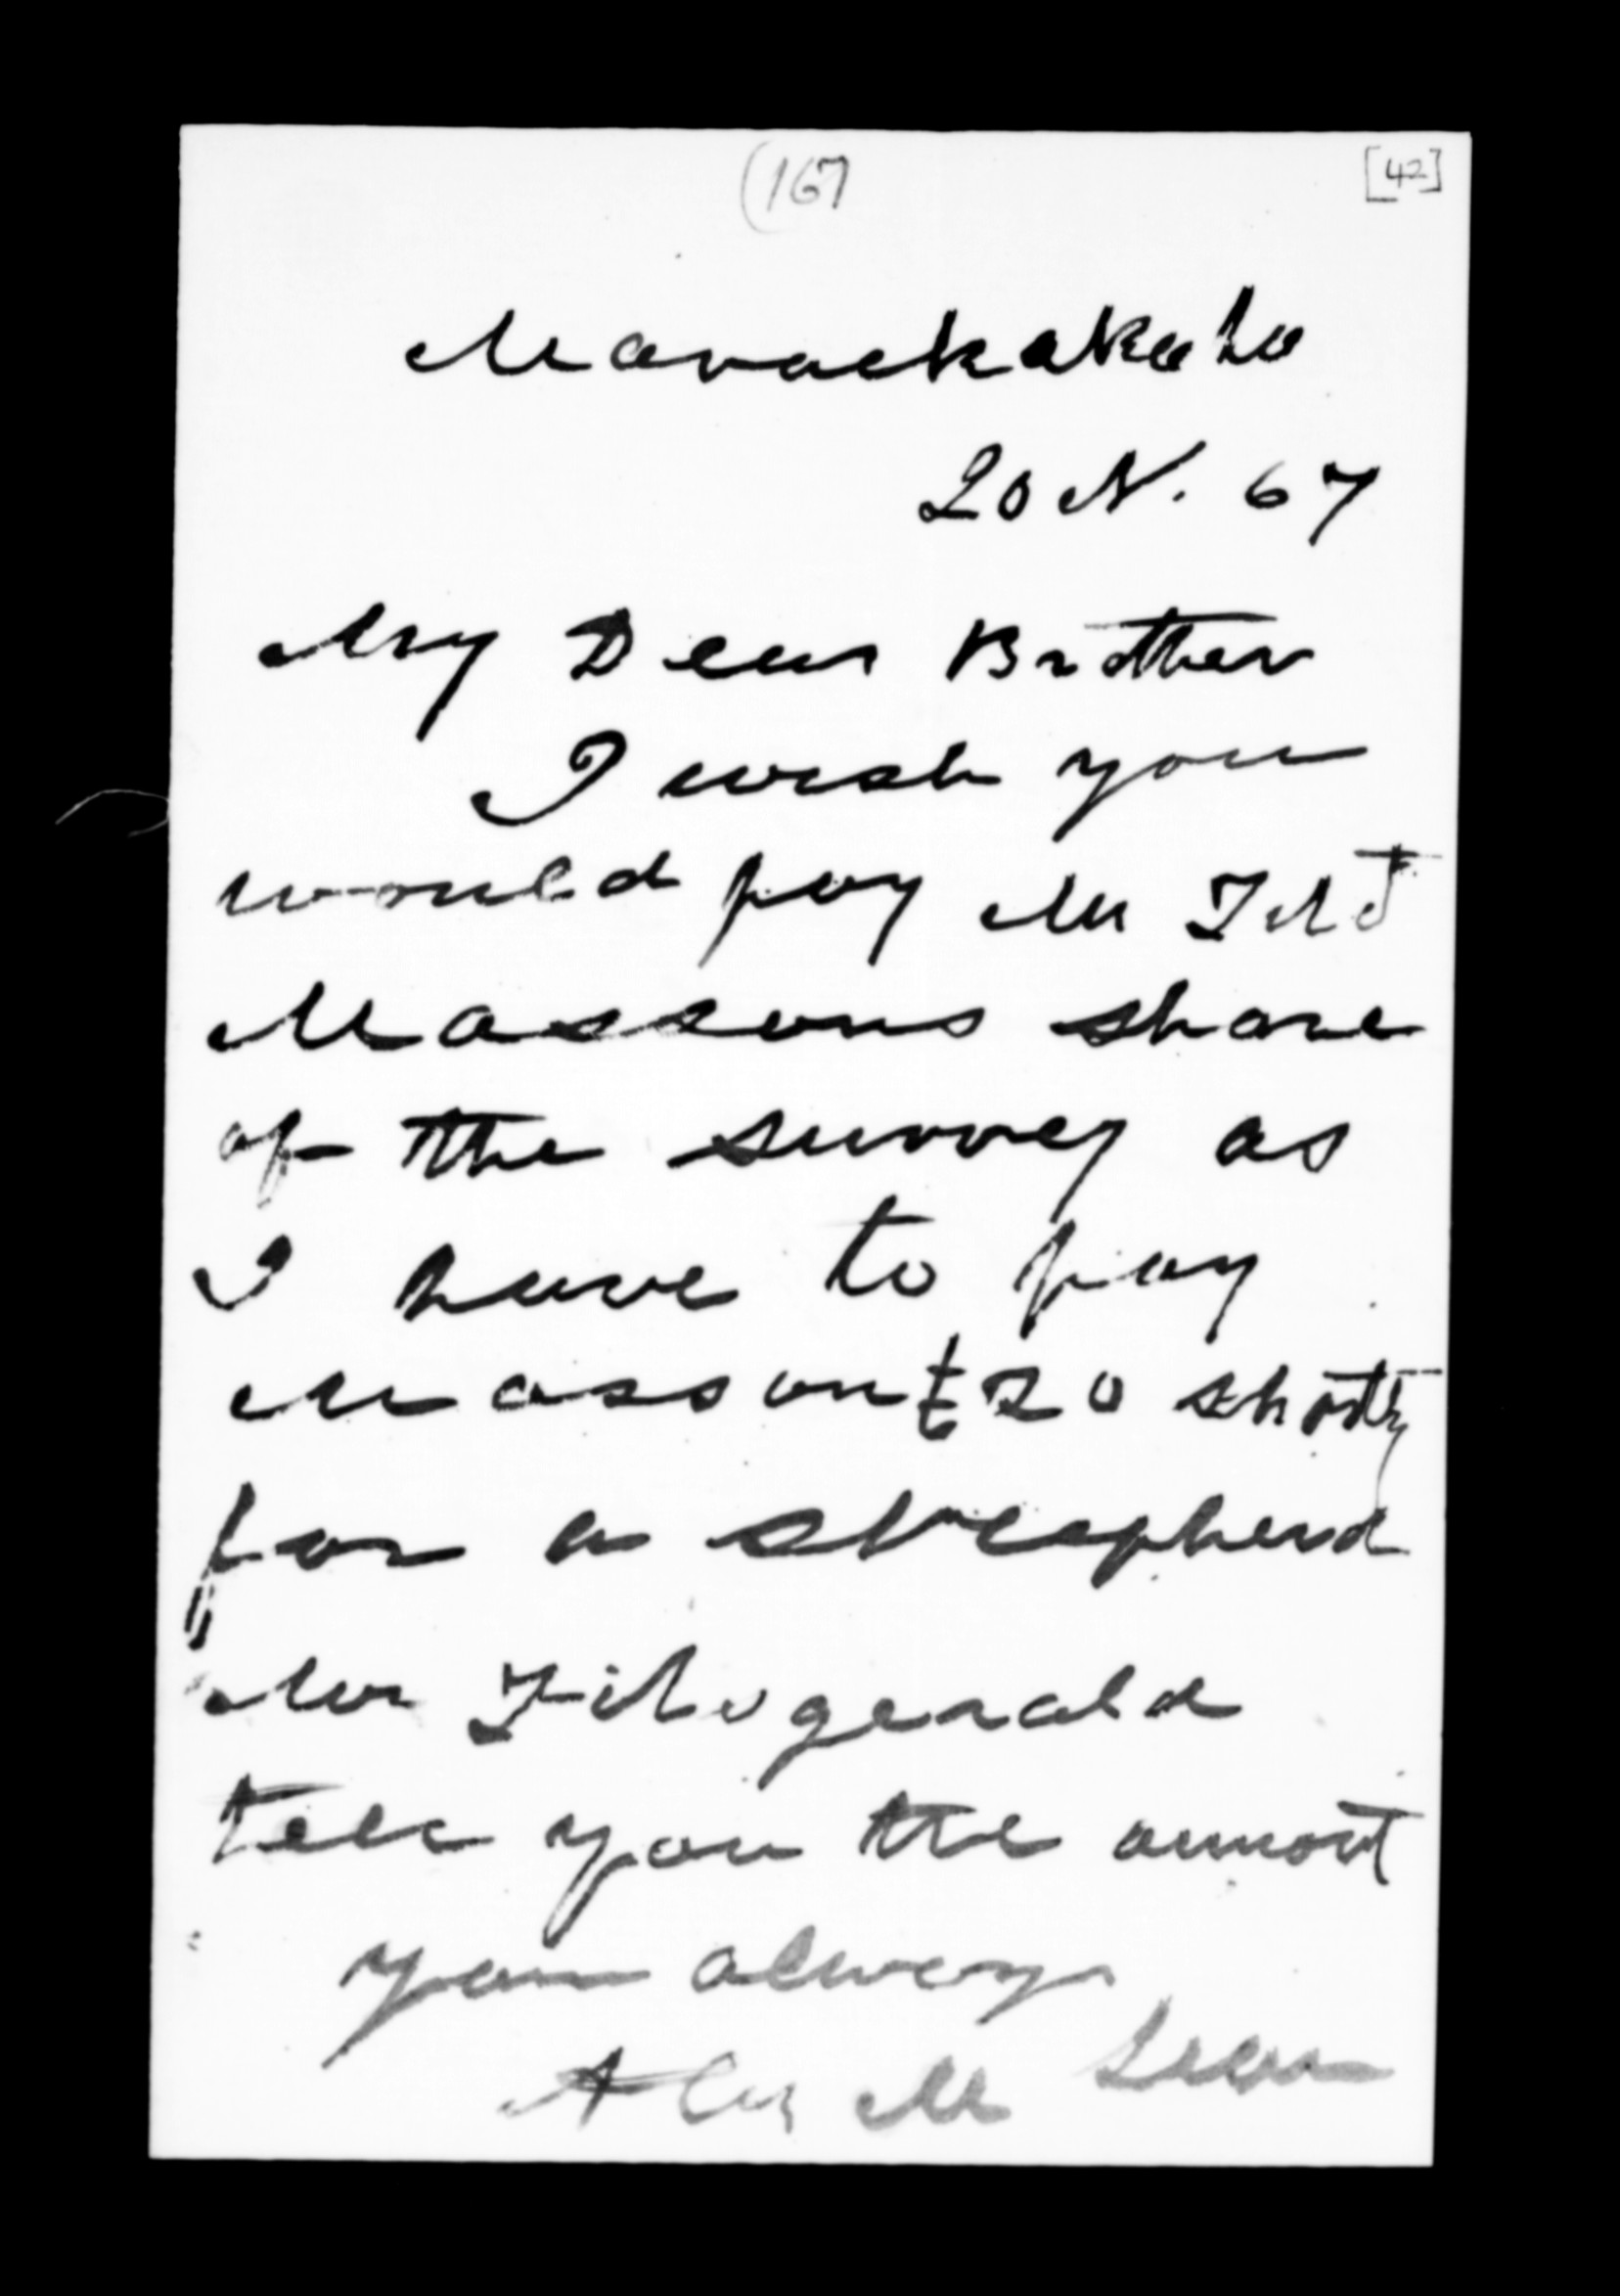 (167
[42]
Maraekakaho
20 N. 67
My Dear Brother
I wish you
would pay Mr
Massons share
of the survey as
I have to pay
Masson £20 shortly
for a sheepherd
Mr Fitzgerald
tell you the amont
your always
Alex Mc Lean